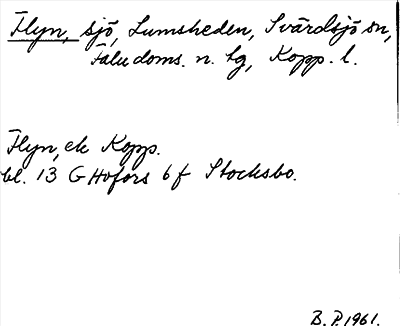 Flyn, sjö, Lumsheden, Svärdsjö sn,
Falu doms. n. tg, Kopp. l.
Flyn, ek Kopp.
bl. 13 G Hofors 6 f Stocksbo.
B. P. 1961.